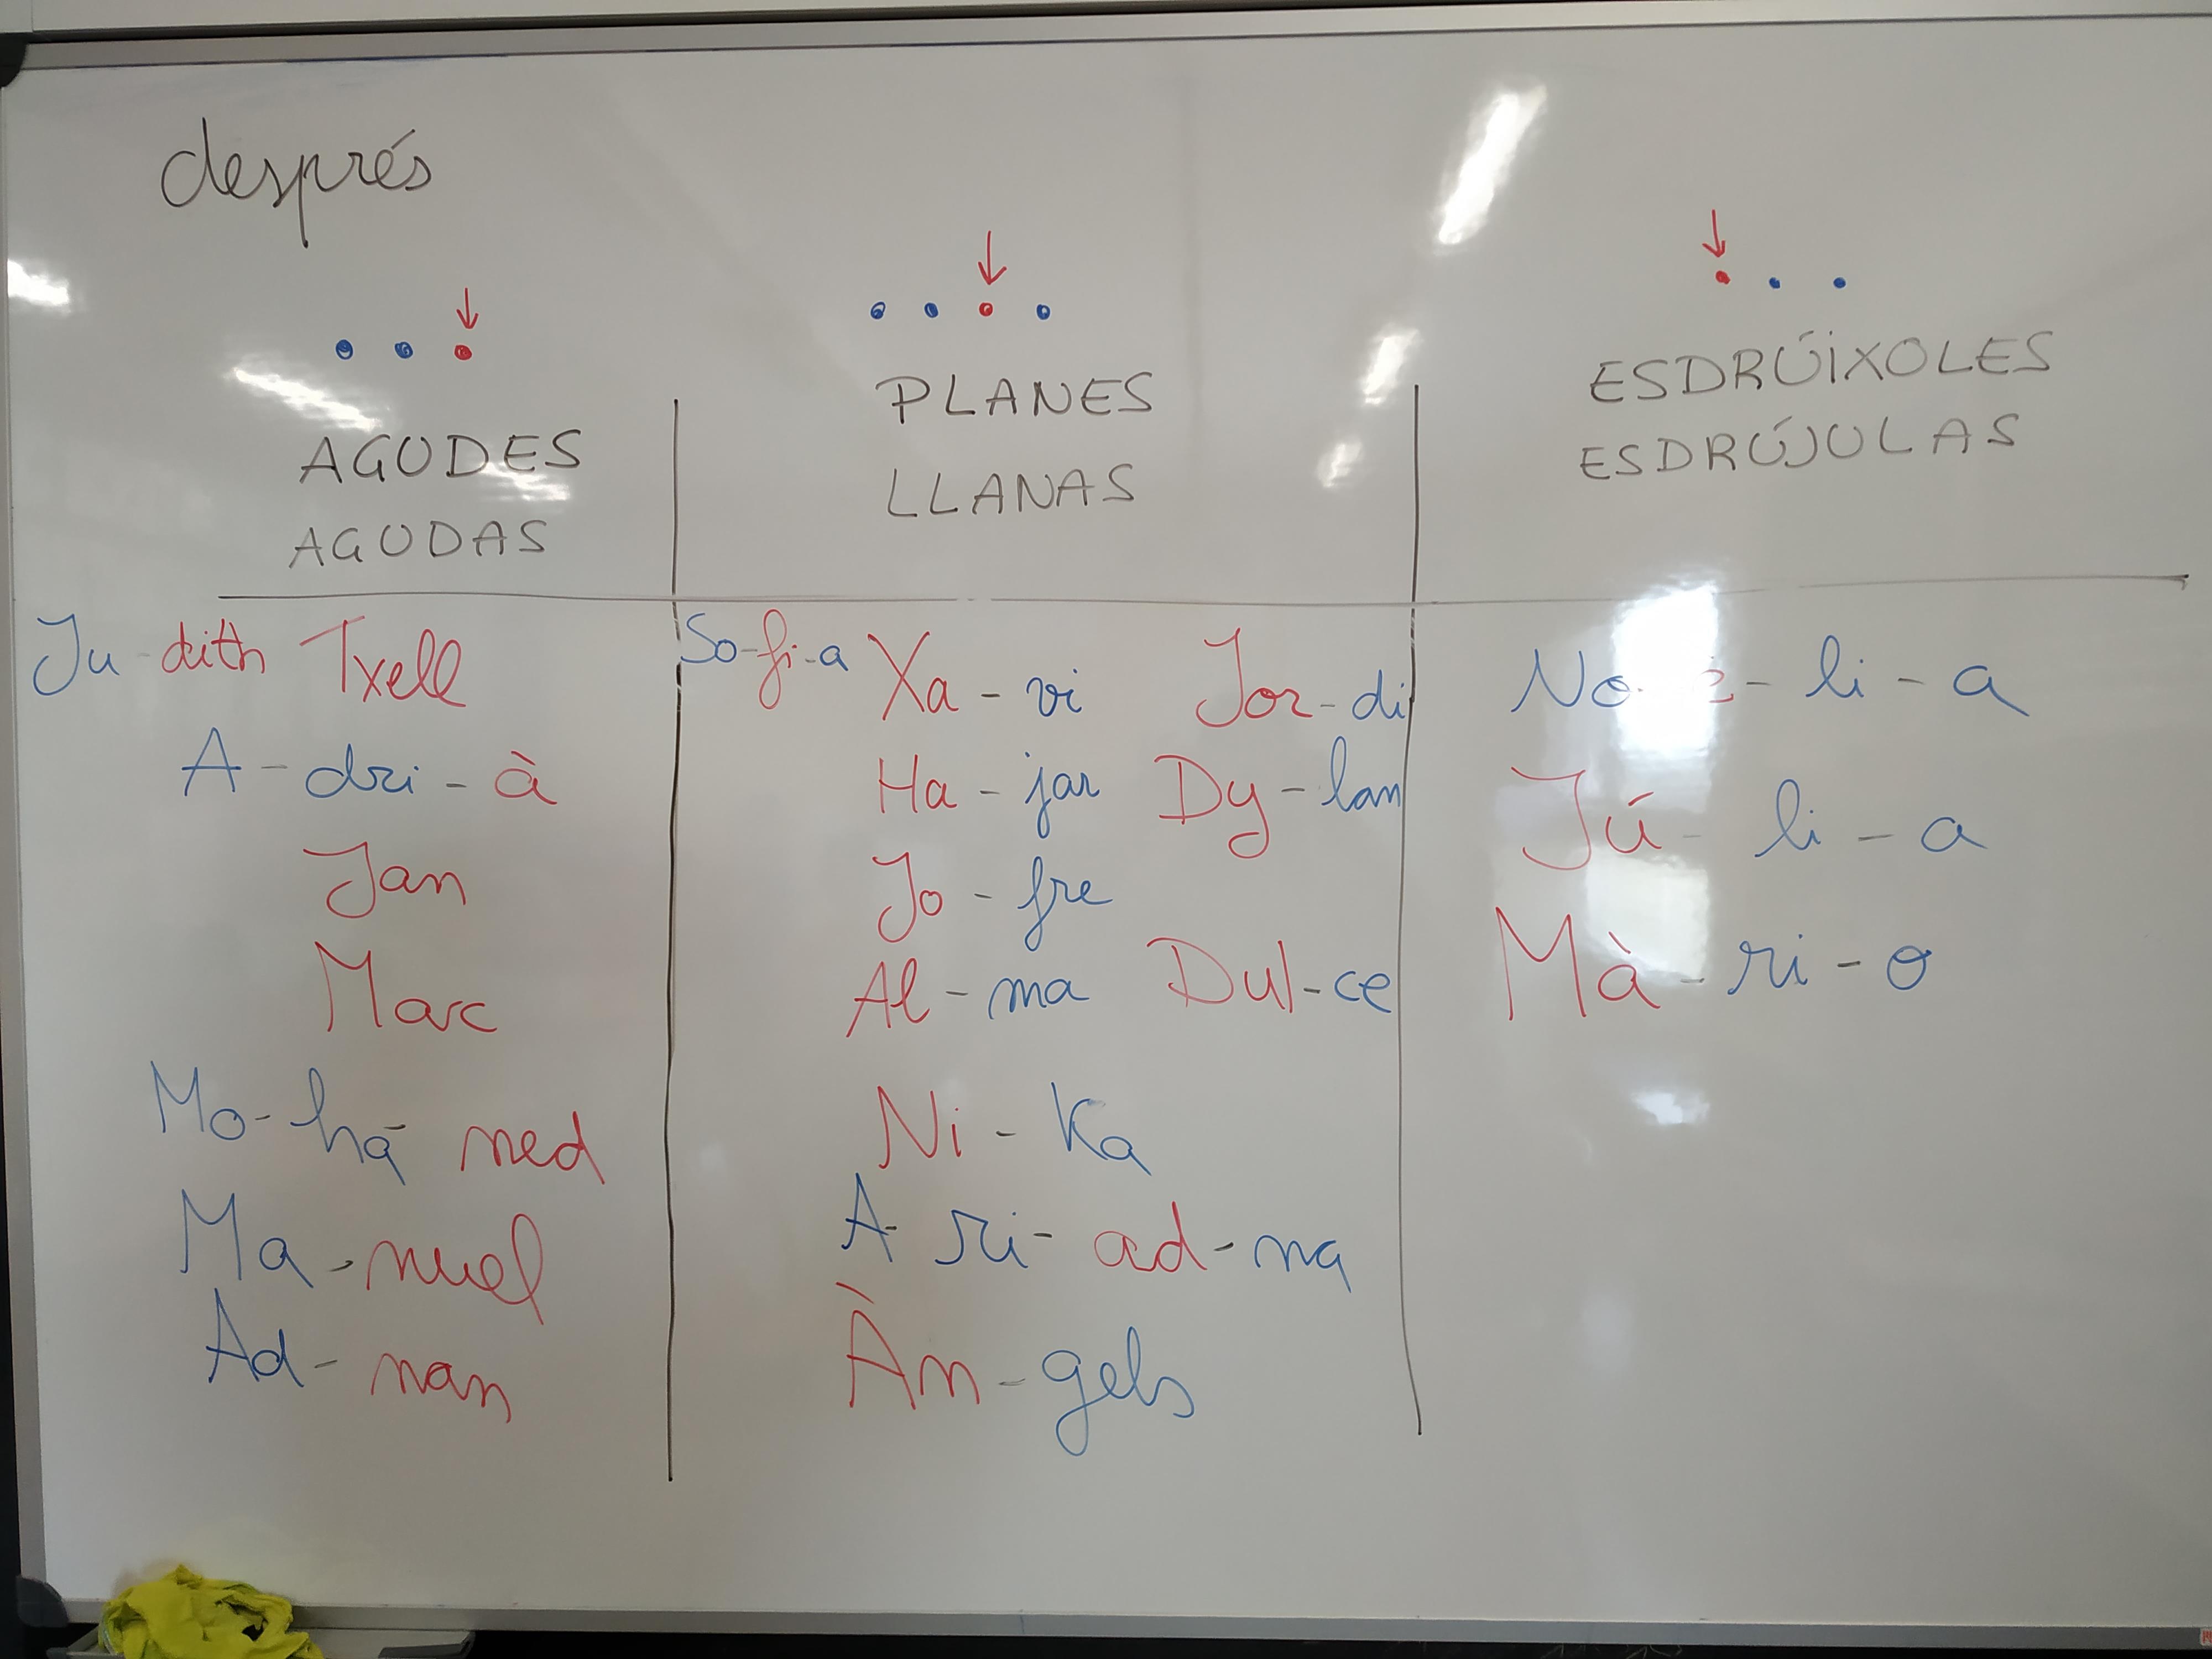 després
AGUDES
AGUDAS
PLANES
LLANAS
ESDRÚIXOLES
ESDRÚJULAS
Ju-dith Txell
A-dri-à
Jan
Marc
Mo-ha-med
Ma-nuel
Ad-nan
So-fi-a Xa-vi Jor-di
Ha-jar Dy-lan
Jo-fre
Al-ma Dul-ce
Ni-ka
A-ri-ad-na
Àn-gels
li-a
Jú-li-a
Mà-ri-o